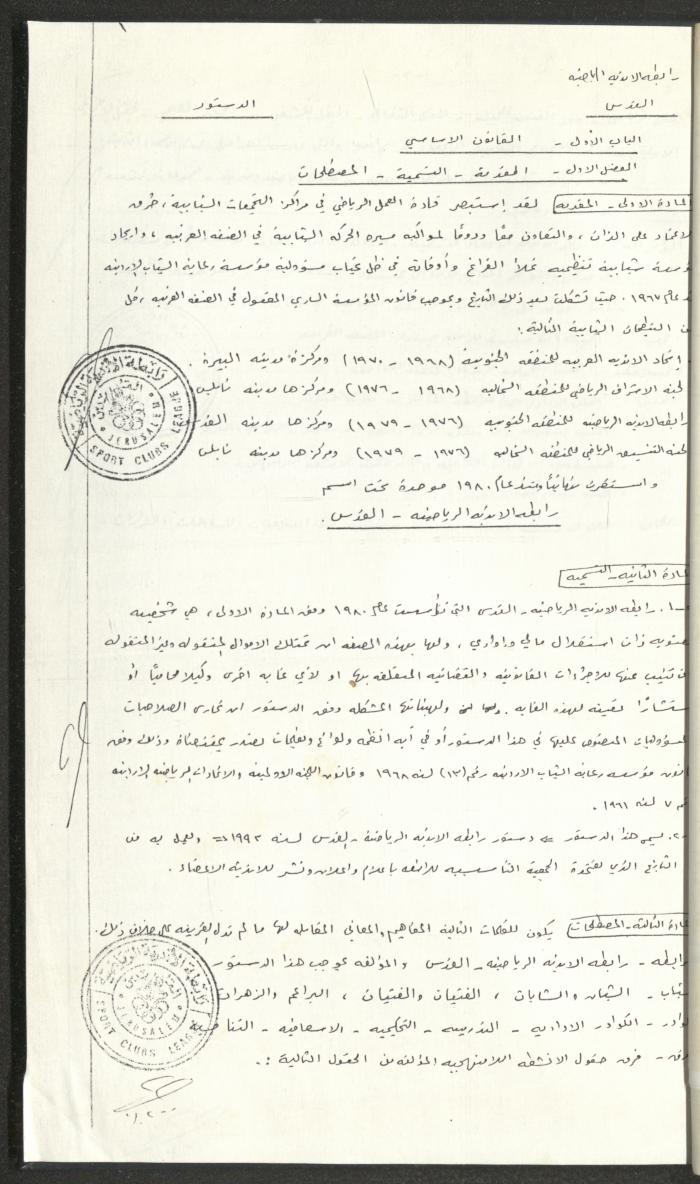 رابطة الاندية الرياضية
القدس
الدستور
الباب الأول - القانون الاساسي
الفصل الاول - المقدمة - التسمية - المصطلحات
المادة الاولى - المقدمة لقد إستبصر قادة العمل الرياضي في مراكز التجمعات الشبابية، طرق
الاعتماد على الذات، والتعاون معًا ودومًا لمواكبة مسيرة الحركة الشبابية في الضفة الغربية، وايجاد
مؤسسة شبابية تنظيمية تملأ الفراغ وأوقاته في ظل غياب مسؤولية مؤسسة رعاية الشباب الاردنية
عام ١٩٦٧. حيث تشكلت بعد ذلك التاريخ وبموجب قانون المؤسسة الساري المفعول في الضفة الغربية، كل
من التنظيمات الشبابية التالية:
إتحاد الاندية العربية للمنطقة الجنوبية (١٩٦٨ - ١٩٧٠) ومركزه مدينة البيرة.
لجنة الاشراف الرياضي للمنطقة الشمالية (١٩٦٨ - ١٩٧٦) ومركزها مدينة نابلس
رابطة الاندية الرياضية للمنطقة الجنوبية (١٩٧٦ - ١٩٧٩) ومركزها مدينة القدس
لجنة التنسيق الرياضي للمنطقة الشمالية (١٩٧٦ - ١٩٧٩) ومركزها مدينة نابلس
واستقرت نهائيًا ومنذ عام ١٩٨٠ موحدة تحت اسم
رابطة الاندية الرياضية - القدس.
المادة الثانية - التسمية
١- رابطة الاندية الرياضية - القدس التي تأسست عام ١٩٨٠ وفق المادة الاولى، هي شخصية
معنوية ذات استقلال مالي واداري، ولها بهذه الصفة ان تمتلك الاموال المنقولة وغير المنقولة
وان تنيب عنها للاجراءات القانونية والقضائية المتعلقة بها او لأي غاية اخرى وكيلا محاميًا أو
مستشارًا تعينه لهذه الغاية. ولهيئاتها المشكلة وفق الدستور ان تمارس الصلاحيات
والمسؤوليات المنصوص عليها في هذا الدستور أو في أية انظمة ولوائح وتعليمات تصدر بمقتضاه وذلك وفق
قانون مؤسسة رعاية الشباب الاردنية رقم (١٣) لسنة ١٩٦٨ وقانون اللجنة الاولمبية والاتحادات الرياضية الاردنية
رقم ٧ لسنة ١٩٦١.
٢- يسمى هذا الدستور = دستور رابطة الاندية الرياضية - القدس لسنة ١٩٩٣ = ويعمل به من
التاريخ الذي تعتمده الجمعية التأسيسية للرابطة باعلام واعلان ونشر للاندية الاعضاء.
المادة الثالثة - المصطلحات يكون للكلمات التالية المفاهيم والمعاني المقابلة لها ما لم تدل القرينة على خلاف ذلك.
الرابطة - رابطة الاندية الرياضية - القدس والمؤلفة بموجب هذا الدستور
الشباب - الشبان والشابات، الفتيان والفتيات، البراعم والزهرات
الكوادر - الكوادر الادارية - التدريبية - التحكيمية - الاسعافية - التنافسية
الفرق - فرق حقول الانشطة اللامنهجية المؤلفة من الحقول التالية:.
رابطة الأندية الرياضية
القدس
JERUSALEM
SPORT CLUBS LEAGUE
رابطة الأندية الرياضية
القدس
JERUSALEM
SPORT CLUBS LEAGUE